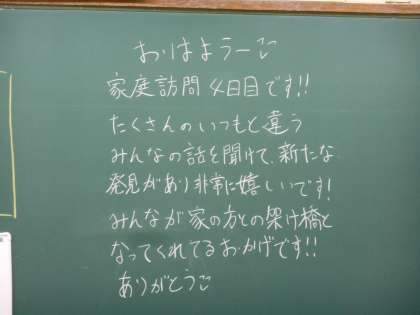 おはようー
家庭訪問4日目です!!
たくさんのいつもと違う
みんなの話を聞けて、新たな
発見があり非常に嬉しいです!
みんなが家の方との架け橋と
なってくれてるおかげです!!
ありがとう